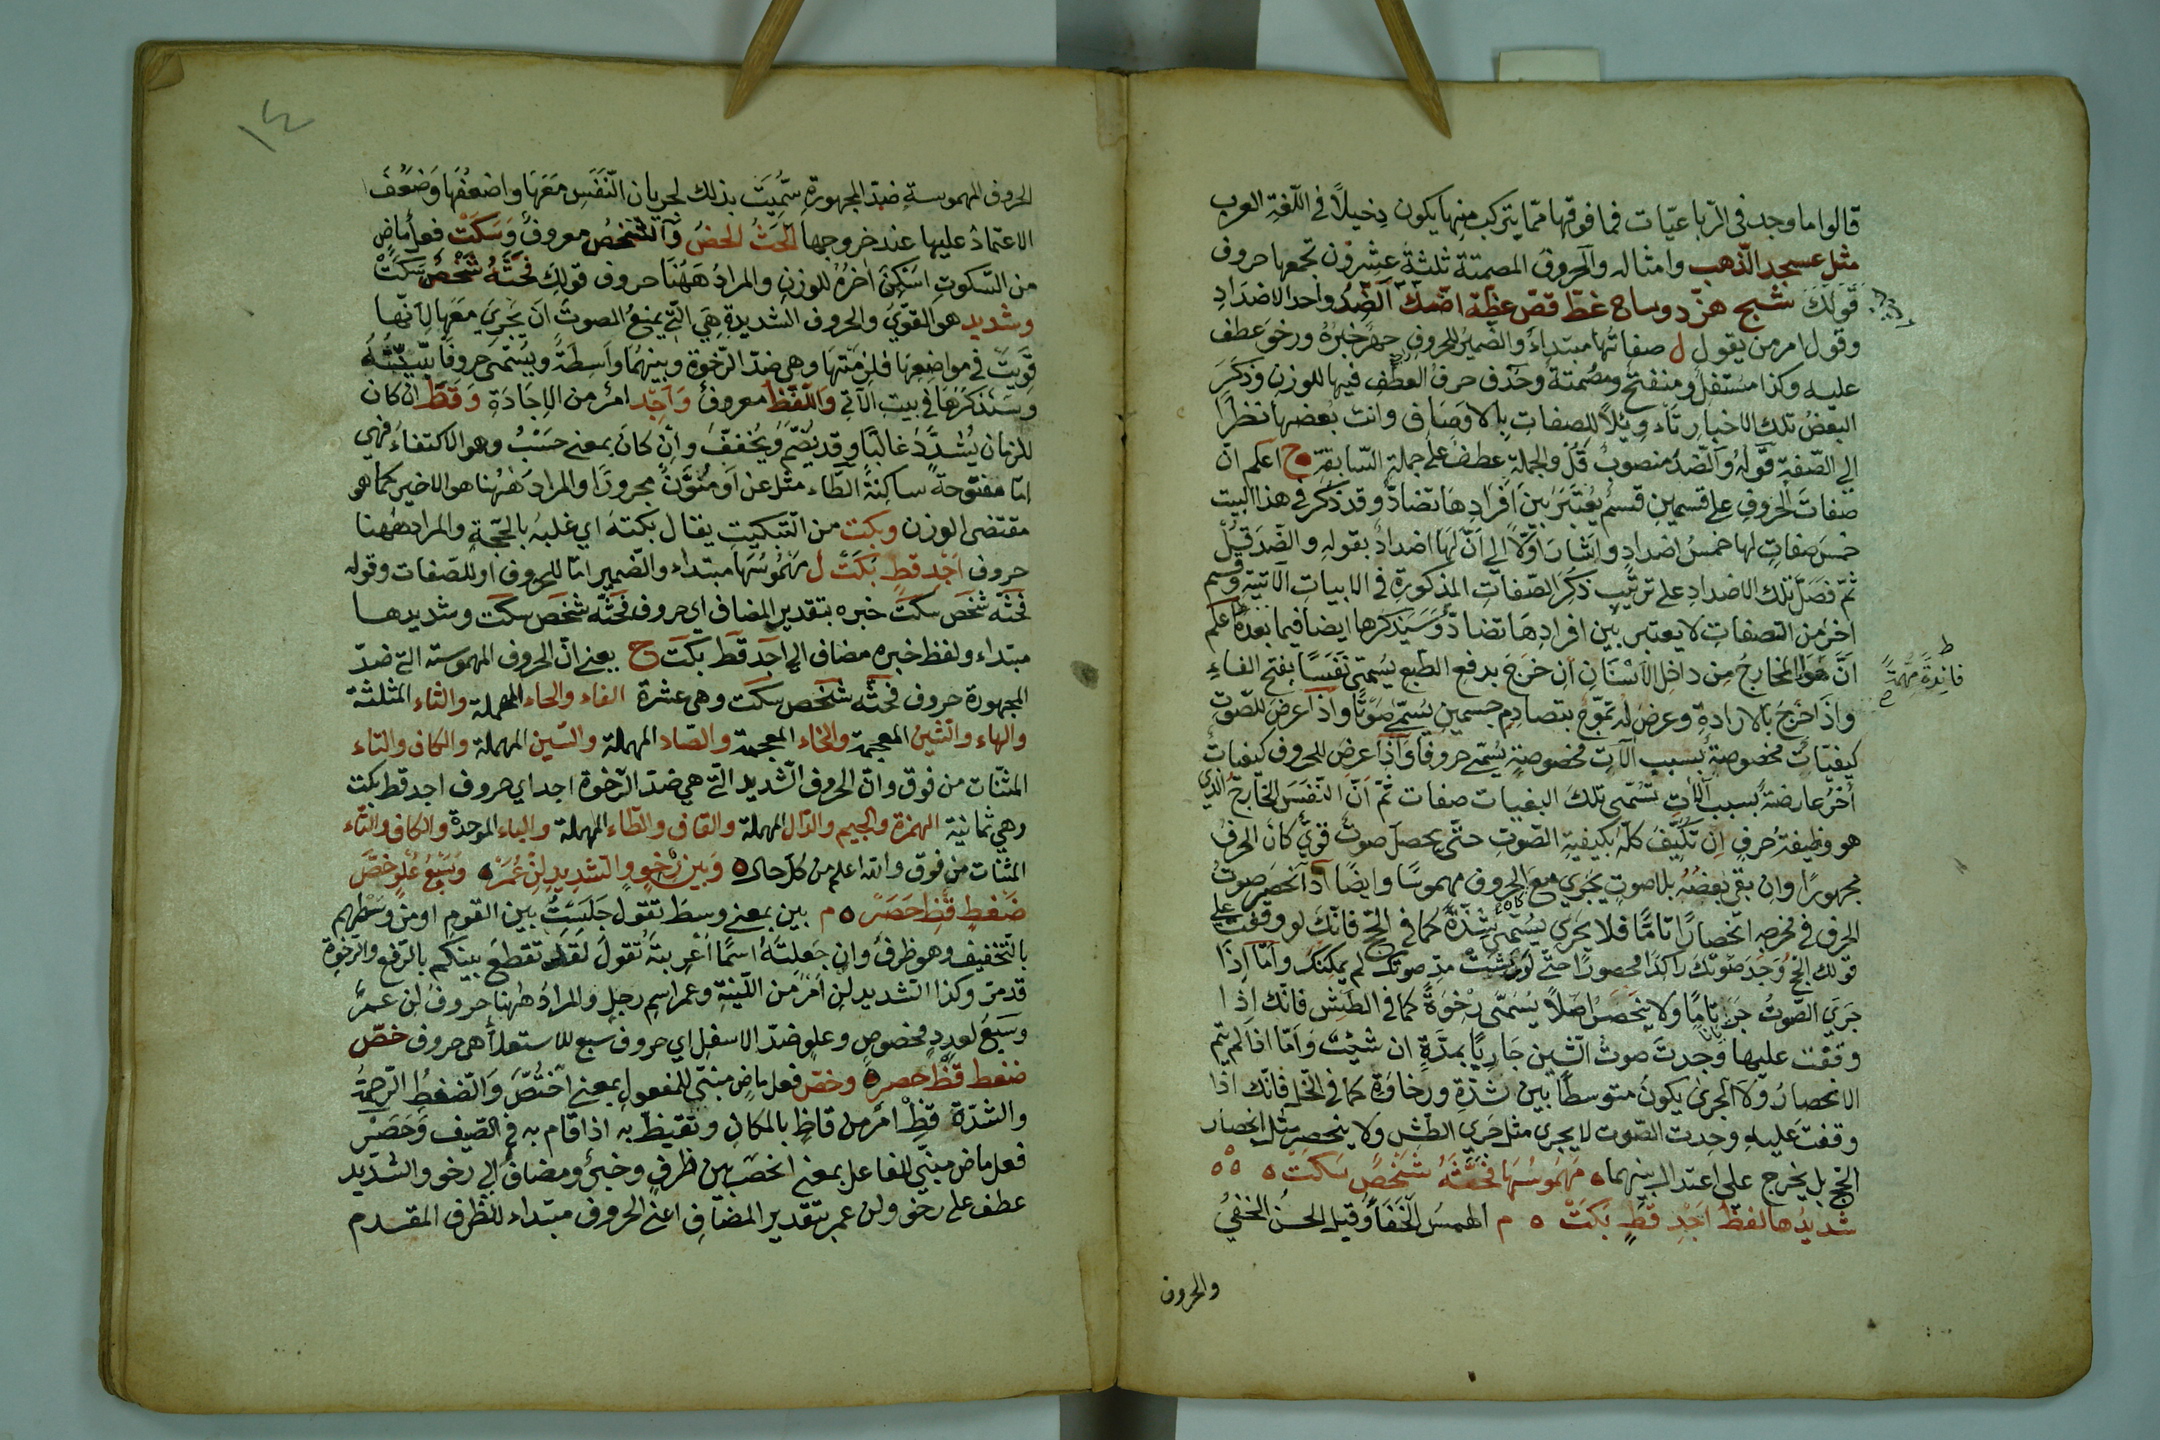 قالوا ما وجد في الرباعيات فما فوقها مما يتركب منها يكون دخيلاً في اللغة العرب
مثل عسجد الذهب وامثاله والحروف المصمتة ثلثة عشرون تجمعها حروف
قولك غظ قص عظة اضك الضد واحد الاضداد
وقول امر من يقول ل صفاتها مبتداء والضمير للحروف جهر خبره ورخو عطف
عليه وكذا مستفل ومنفتح ومصمتة وحذف حرف العطف فيها للوزن وذكر
البعض تلك الاخبار تاء ويلاً للصفات بالاوصاف وانث بعضها نظراً
الى الصفة قوله والضد منصوب قل والجملة عطف على جملة السابقة ح اعلم ان
صفات الحروف على قسمين قسم يعتبر بين افرادها تضاد وقد ذكر في هذا البيت
خمس صفات لها خمس اضداد واشار اولاً الى ان لها اضداد بقوله والضد قل
ثم فصل تلك الاضداد على ترتيب ذكر الصفات المذكورة في الابيات الآتية وقسم
اخر من الصفات لا يعتبر بين افرادها تضاد وسيذكرها ايضا فيما بعده اعلم
فائدة مهمة
ان هواء المخارج من داخل الاسنان ان خرج بدفع الطبع يسمى نفسا بفتح الفاء
واذا خرج بالارادة وعرض له تموج بتصادم جسمين يسمى صوتا واذا عرض للصوت
كيفيات مخصوصة بسبب آلات مخصوصة يسمى حروفا واذا عرض للحروف كيفيات
أخر عارضة بسبب آلات تسمى تلك البغيات صفات ثم ان النفس الخارج الذي
هو وظيفة حرف ان تكيف كله بكيفية الصوت حتى يحصل صوت قوي كان الحرف
مجهورا وان بقي بعضه بلا صوت يجري مع الحروف مهموسا وايضا اذا انحصر صوت
الحرف في مخرجه انحصارا تاما فلا يجري يسمى شدة كما في الحج فانك لو وقفت على
قولك الحج وجد صوتك راكدا محصورا حتى لو شئت مد صوتك لم يمكنك واما اذا
جرى الصوت جريا تاما ولا ينحصر اصلاً يسمى رخوة كما في الطش فانك اذا
وقفت عليها وجدت صوت الشين جاريا بمدة ان شئت واما اذا لم يتم
الانحصار ولا الجري يكون متوسطا بين شدة ورخاوة كما في الخل فانك اذا
وقفت عليه وجدت الصوت لا يجري مثل جري الطش ولا ينحصر مثل انحصار
الحج بل يخرج على اعتدال بينهما ه مهموسها فحثه شخص سكت ه ه ه
شديدها لفظ اجد قط بكت ه م الهمس الخفاء وقيل الحس الخفي
والحروف
١٤
الحروف المهموسة ضد المجهورة سميت بذلك لجريان النفس معها واضعفها وضعف
الاعتماد عليها عند خروجها الحث الحض والشخص معروف وسكت فعل ماض
من السكوت اسكن اخره للوزن والمراد ههنا حروف قولك فحثه شخص سكت
وشديد هو القوي والحروف الشديدة هي التي يمنع الصوت ان يجري معها لانها
قويت في مواضعها فلزمتها وهي ضد الرخوة وبينهما واسطة ويسمى حروفا بينية
وسنذكرها في بيت الآتي واللفظ معروف واجد امر من الاجادة وقط ان كان
للزمان يشدد غالبا وقد يضم ويخفف وان كان بمعنى حسب وهو الاكتفاء فهي
اما مفتوحة ساكنة الطاء مثل عن او منونة مجرورا والمراد ههنا هو الاخير كما هو
مقتضى الوزن وبكت من التبكيت يقال بكته اي غلبه بالحجة والمراد ههنا
حروف اجد قط بكت ل مهموسها مبتداء والضمير اما للحروف او للصفات وقوله
فحثه شخص سكت خبره بتقدير المضاف اي حروف فحثه شخص سكت وشديدها
مبتداء ولفظ خبره مضاف الى اجد قط بكت ح يعني ان الحروف المهموسة التي ضد
المجهورة حروف فحثه شخص سكت وهي عشرة الفاء والحاء المهملة والثاء المثلثة
والهاء والشين المعجمة والخاء المعجمة والصاد المهملة والسين المهملة والكاف والتاء
المثنات من فوق وان الحروف الشديد التي هي ضد الرخوة اجد اي حروف اجد قط بكت
وهي ثمانية الهمزة والجيم والدال المهملة والقاف والطاء المهملة والباء الموحدة والكاف والتاء
المثنات من فوق والله اعلم من كل حال ه وبين رخو والشديد لن عمر ه وسبع علو خص
ضغط قظ حصر ه م بين بمعنى وسط تقول جلست بين القوم او من وسطهم
بالتخفيف وهو ظرف وان جعلته اسما اعربته تقول لقد تقطع بينكم بالرفع والرخوة
قد مر وكذا الشديد لن امر من اللينة وعمر اسم رجل والمراد ههنا حروف لن عمر
وسبع لعدد مخصوص وعلو ضد الاسفل اي حروف سبع للاستعلاء هي حروف خص
ضغط قظ حصر ه وخص فعل ماض مبني للمفعول بمعنى اختص والضغط الزحمة
والشدة قظ امر من قاظ بالمكان وتقيظ به اذا قام به في الصيف وحصر
فعل ماض مبني للفاعل بمعنى انحصر بين ظرف وخبر ومضاف الى رخو والشديد
عطف على رخو ولن عمر بتقدير المضاف اعني الحروف مبتداء للظرف المقدم